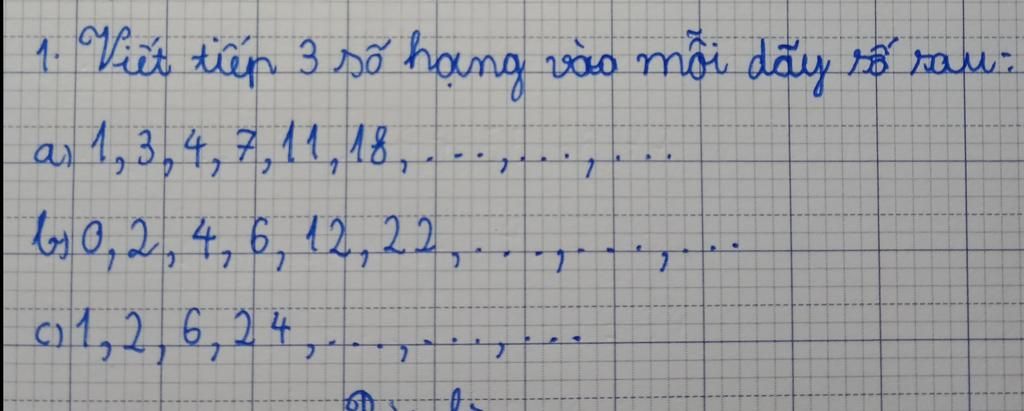 1. Viết tiếp 3 số hạng vào mỗi dãy số sau:
a) 1, 3, 4, 7, 11, 18, ...., ...., ....
b) 0, 2, 4, 6, 12, 22, ...., ...., ....
c) 1, 2, 6, 24, ...., ...., ....